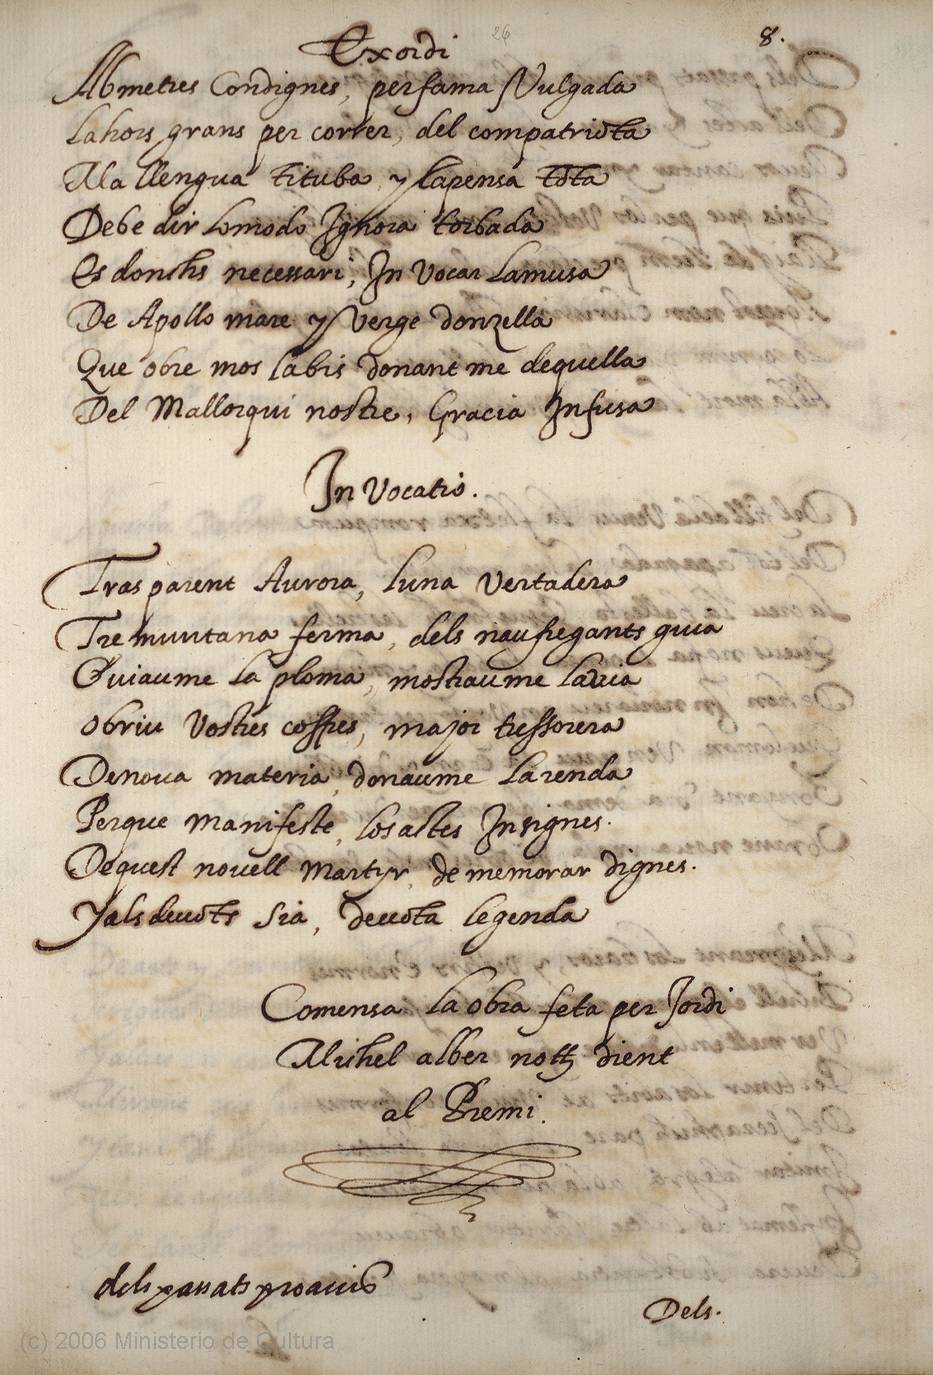 26
8.
Exordi
Ab metres Condignes, per fama Vulgada
Lahors grans per correr, del compatriota
A la llengua tituba y lapensa tota
Debe dir lo modo Ignora torbada
Es donchs necessari, In Vocar Lamusa
De Apollo mare y Verge donzella
Que obre mos labis donant me dequella
Del Mallorqui nostre, Gracia Infusa
In Vocatio.
Trasparent Aurora, luna vertadera
Tremuntana ferma, dels naufregants guia
Guiaume la ploma, mostraume la via
Obriu Vostres coffres, major tressorera
De nova materia, donaume la renda
Perque manifeste, los actes Insignes.
Dequest novell Martyr, de memorar dignes.
Y als devots sia, devota legenda
Comensa la obra feta per Jordi
Michel alber nott dient
al Premi.
dels passats proavis
Dels.
(c) 2006 Ministerio de Cultura